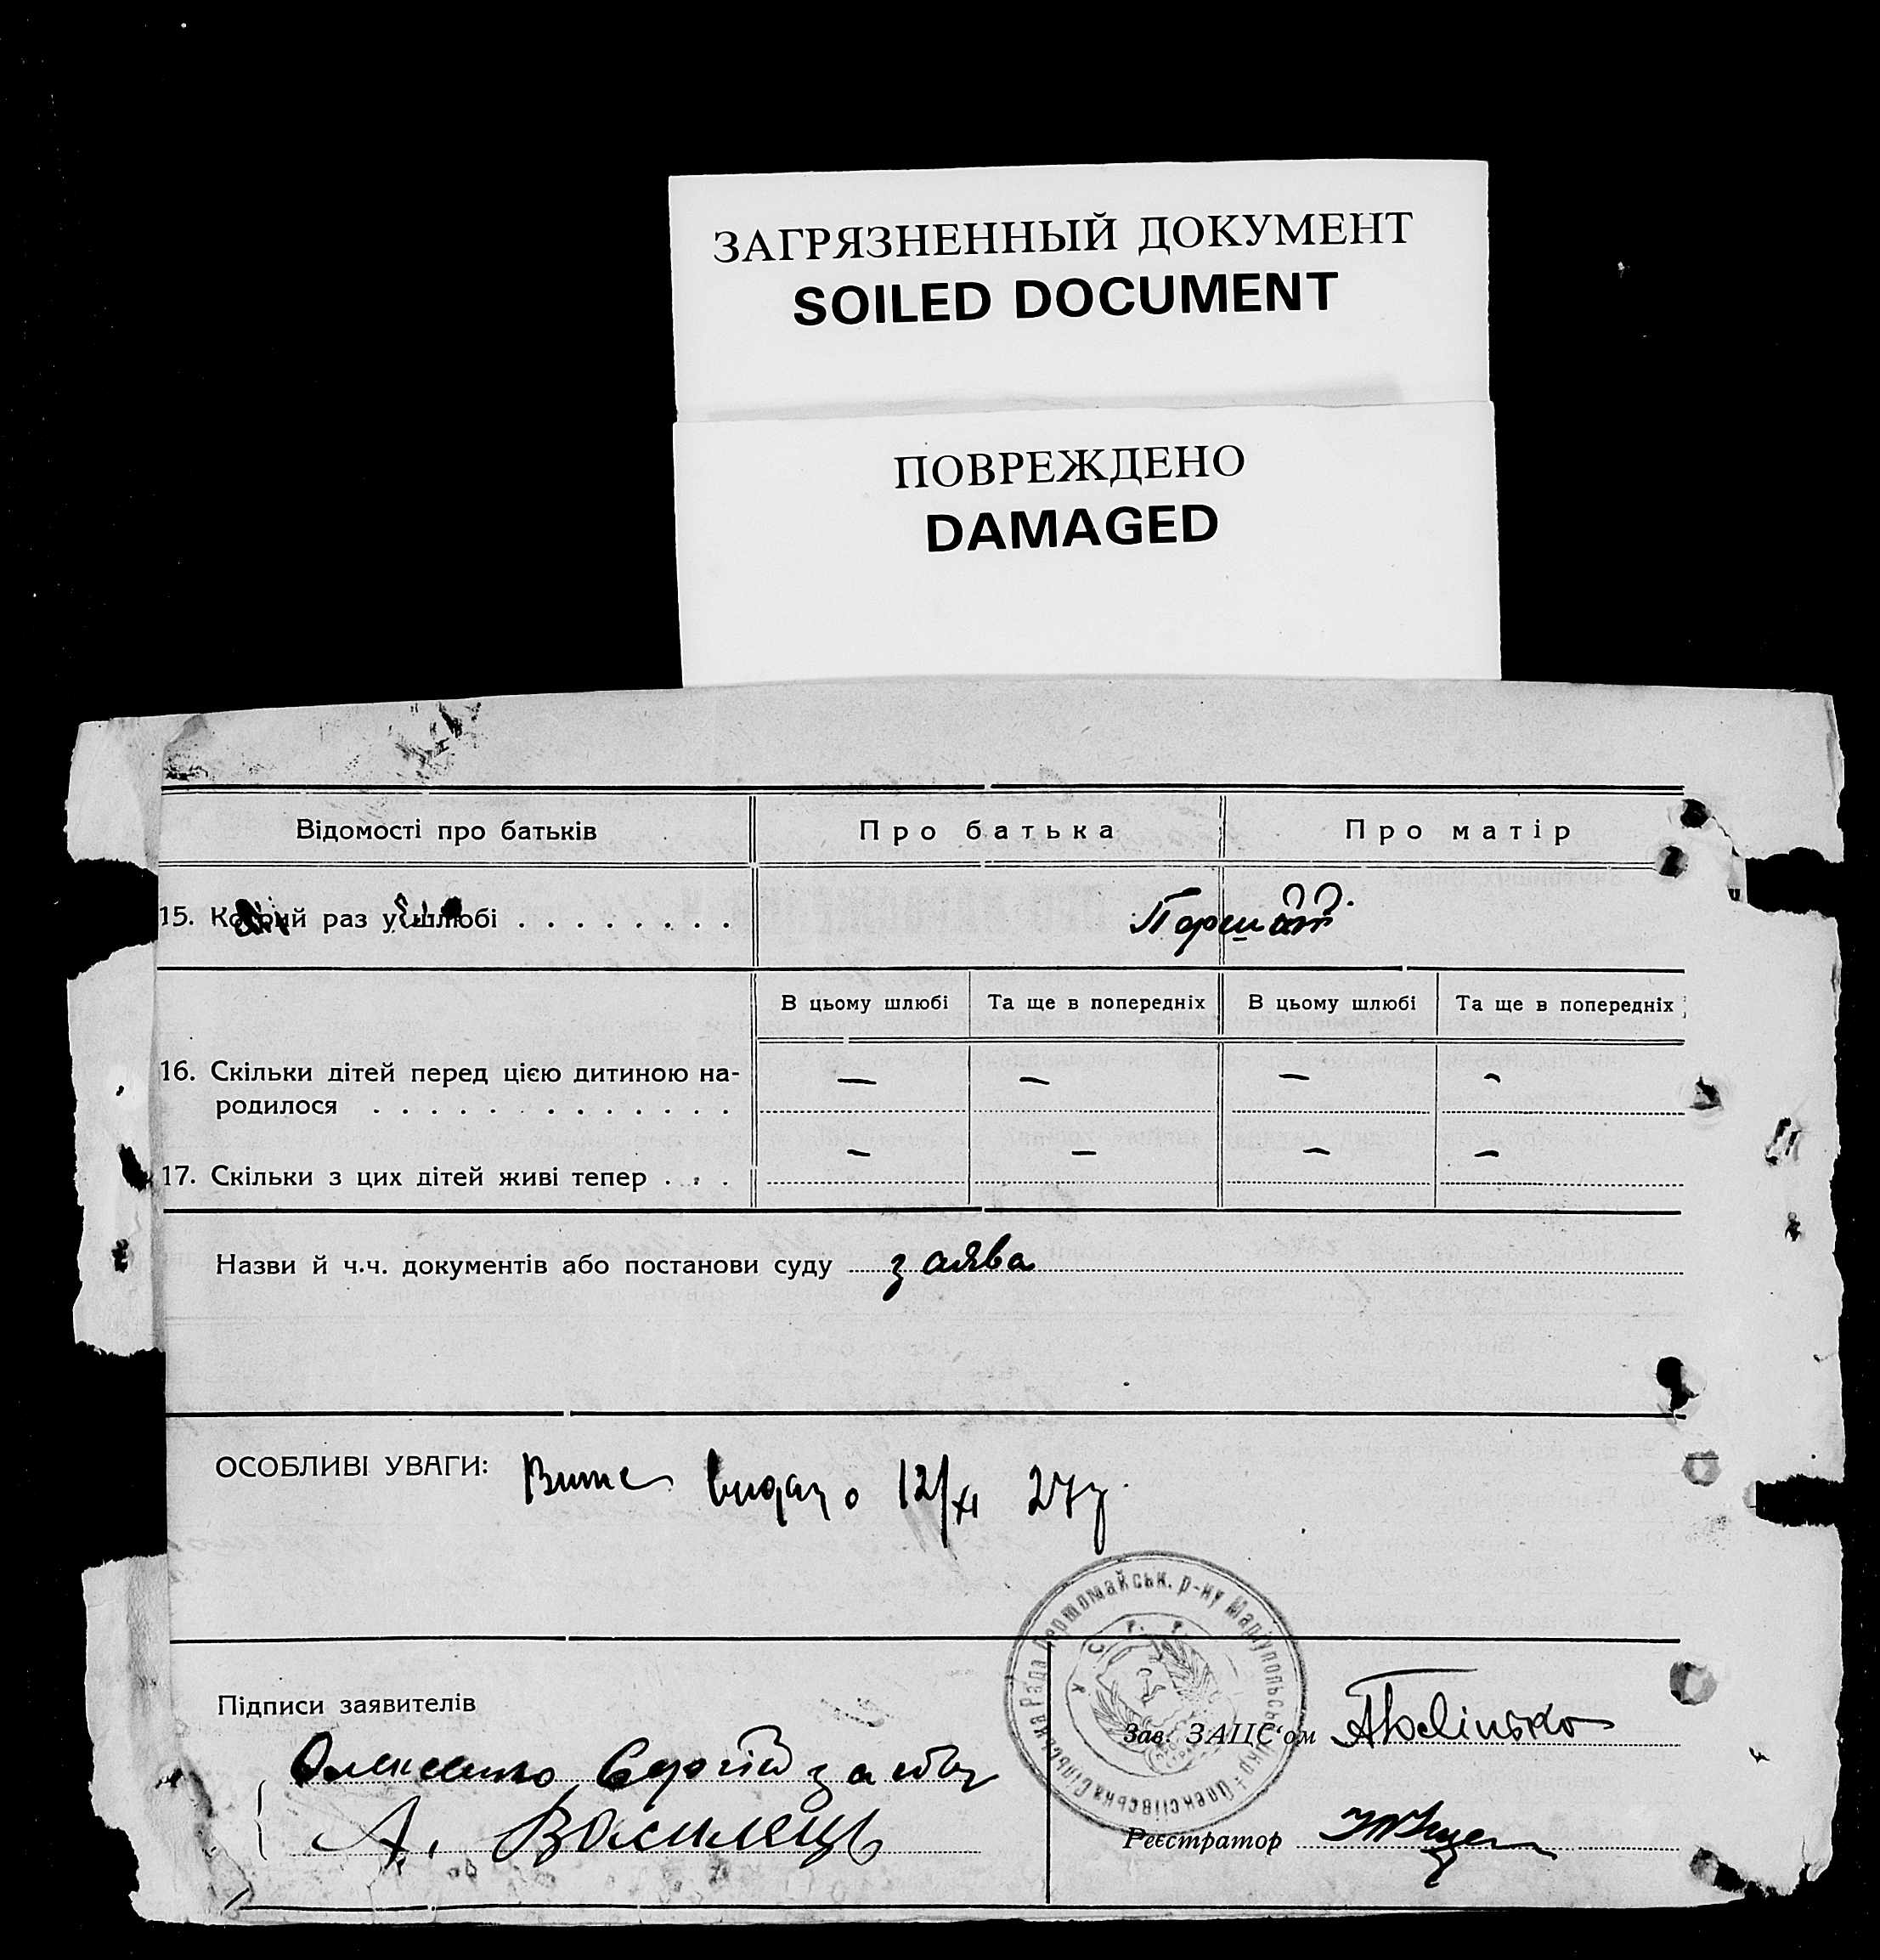 ЗАГРЯЗНЕННЫЙ ДОКУМЕНТ
SOILED DOCUMENT
ПОВРЕЖДЕНО
DAMAGED
Відомості про батьків Про батька Про матір
15. Котрий раз у шлюбі . . . . . . . . Перший.
В цьому шлюбі Та ще в попередніх В цьому шлюбі Та ще в попередніх
16. Скільки дітей перед цією дитиною на- — — — -
родилося . . . . . . . . . . . . .
— — — —
17. Скільки з цих дітей живі тепер . . .
Назви й ч.ч. документів або постанови суду заява
ОСОБЛИВІ УВАГИ: видано 12/XI 27р.
Олексіївська Сільська Рада Першомайськ. р-ну Маріупольськ. окр.
У. С. Р. Р.
Підписи заявителів
Зав. ЗАЦС'ом
Сергій
А. Василець
Реєстратор